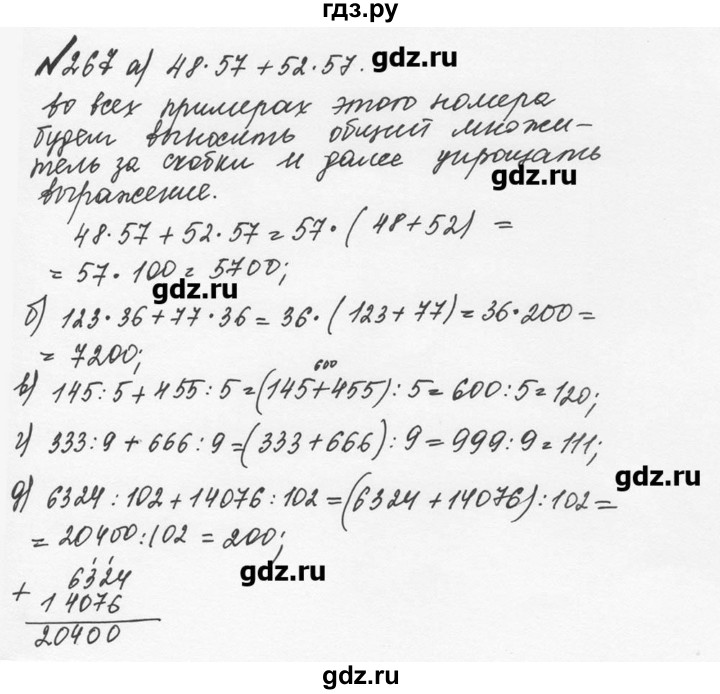 гдз.ру
№267 а) 48·57+52·57. gdz.ru
во всех примерах этого номера
будем выносить общий множи-
тель за скобки и далее упрощать
gdz.ru
выражение.
48·57+52·57=57·(48+52) =
= 57·100=5700;
gdz.ru
б) 123·36+77·36=36·(123+77)=36·200=
= 7200;
600
в) 145:5+455:5=(145+455):5=600:5=120;
г) 333:9+666:9=(333+666):9=999:9=111;
gdz.ru
д) 6324:102+14076:102=(6324+14076):102=
= 20400:102=200;
gdz.ru
6324
+
14076
20400
gdz.ru